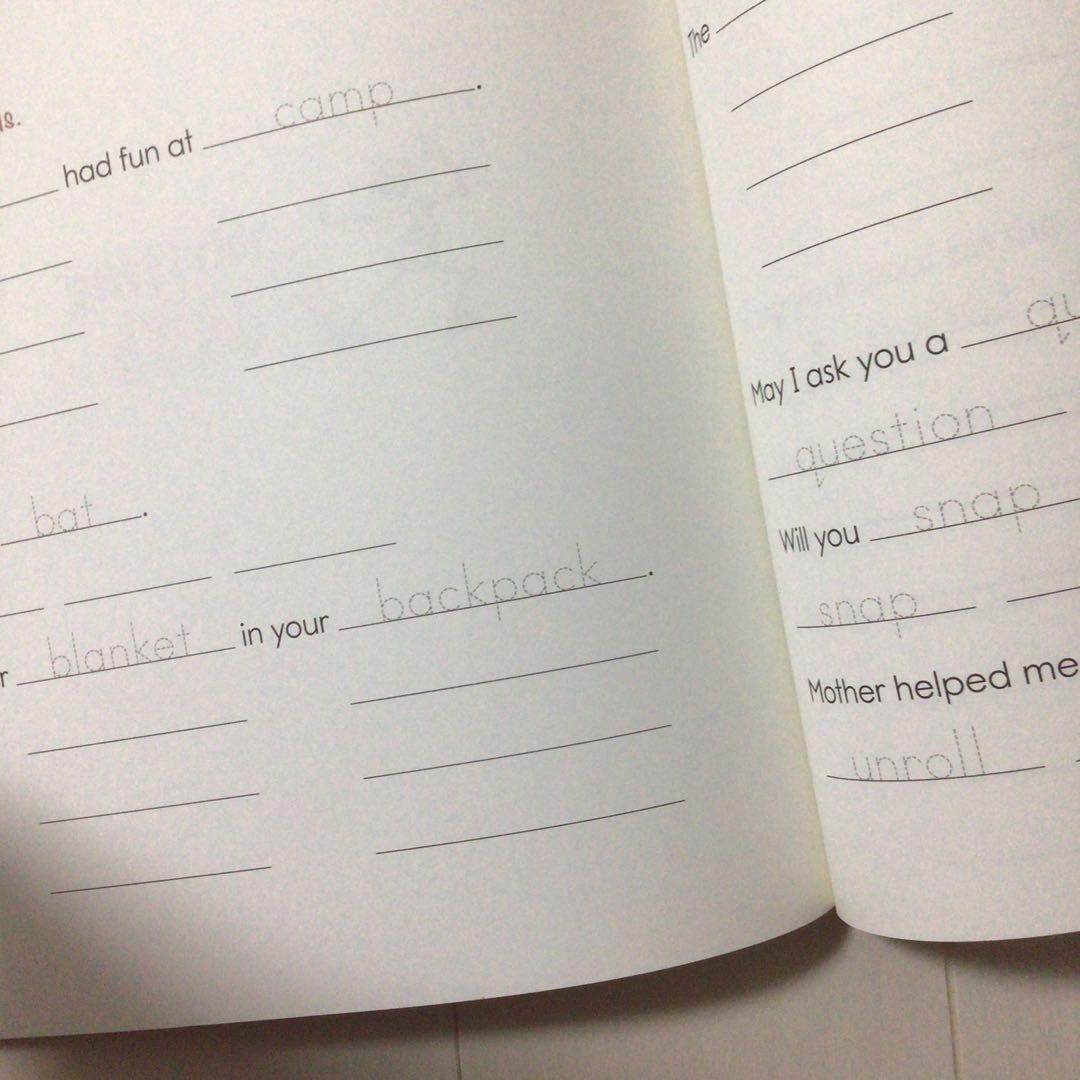 had fun at camp.
bat.
blanket in your backpack.
The
May I ask you a
question
Will you snap
snap
Mother helped me
unroll